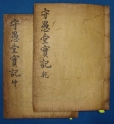 守愚堂寶記 乾
守愚堂寶記 坤